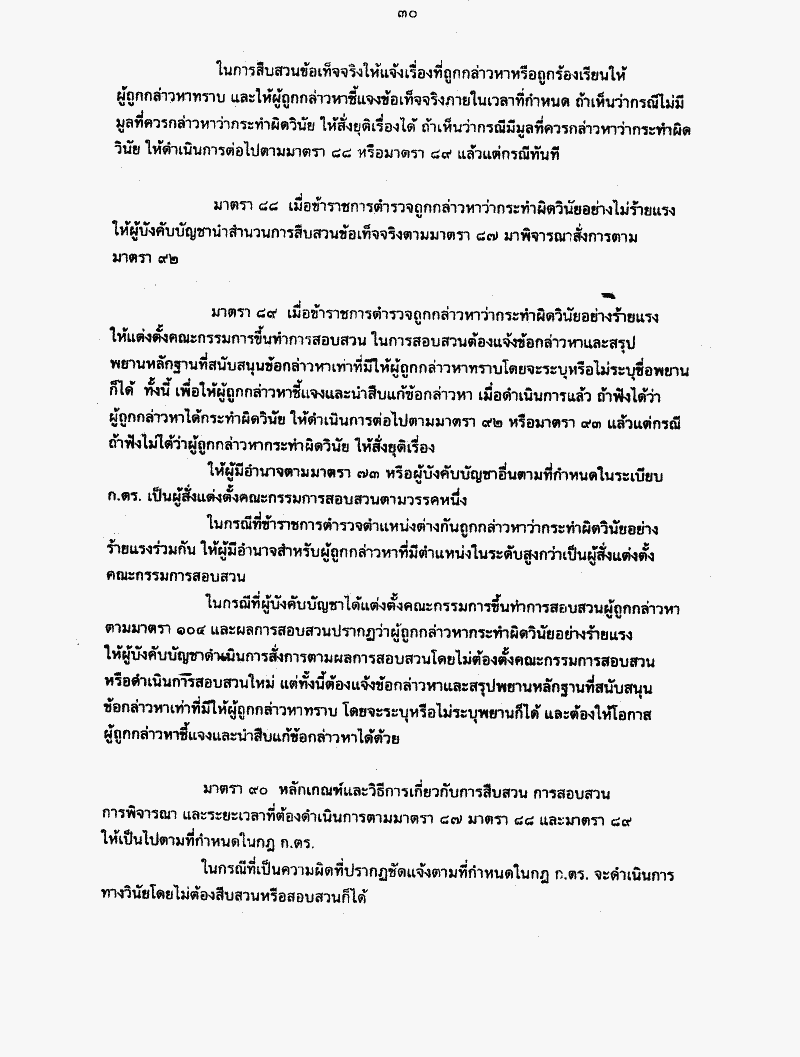 ๓๐
ในการสืบสวนข้อเท็จจริงให้แจ้งเรื่องที่ถูกกล่าวหาหรือถูกร้องเรียนให้
ผู้ถูกกล่าวหาทราบ และให้ผู้ถูกกล่าวหาชี้แจงข้อเท็จจริงภายในเวลาที่กำหนด ถ้าเห็นว่ากรณีไม่มี
มูลที่ควรกล่าวหาว่ากระทำผิดวินัย ให้สั่งยุติเรื่องได้ ถ้าเห็นว่ากรณีมีมูลที่ควรกล่าวหาว่ากระทำผิด
วินัย ให้ดำเนินการต่อไปตามมาตรา ๘๘ หรือมาตรา ๘๙ แล้วแต่กรณีทันที
มาตรา ๘๘ เมื่อข้าราชการตำรวจถูกกล่าวหาว่ากระทำผิดวินัยอย่างไม่ร้ายแรง
ให้ผู้บังคับบัญชานำสำนวนการสืบสวนข้อเท็จจริงตามมาตรา ๘๗ มาพิจารณาสั่งการตาม
มาตรา ๙๒
มาตรา ๘๙ เมื่อข้าราชการตำรวจถูกกล่าวหาว่ากระทำผิดวินัยอย่างร้ายแรง
ให้แต่งตั้งคณะกรรมการขึ้นทำการสอบสวน ในการสอบสวนต้องแจ้งข้อกล่าวหาและสรุป
พยานหลักฐานที่สนับสนุนข้อกล่าวหาเท่าที่มีให้ผู้ถูกกล่าวหาทราบโดยจะระบุหรือไม่ระบุชื่อพยาน
ก็ได้ ทั้งนี้ เพื่อให้ผู้ถูกกล่าวหาชี้แจงและนำสืบแก้ข้อกล่าวหา เมื่อดำเนินการแล้ว ถ้าฟังได้ว่า
ผู้ถูกกล่าวหาได้กระทำผิดวินัย ให้ดำเนินการต่อไปตามมาตรา ๙๒ หรือมาตรา ๙๓ แล้วแต่กรณี
ถ้าฟังไม่ได้ว่าผู้ถูกกล่าวหากระทำผิดวินัย ให้สั่งยุติเรื่อง
ให้ผู้มีอำนาจตามมาตรา ๗๓ หรือผู้บังคับบัญชาอื่นตามที่กำหนดในระเบียบ
ก.ตร. เป็นผู้สั่งแต่งตั้งคณะกรรมการสอบสวนตามวรรคหนึ่ง
ในกรณีที่ข้าราชการตำรวจตำแหน่งต่างกันถูกกล่าวหาว่ากระทำผิดวินัยอย่าง
ร้ายแรงร่วมกัน ให้ผู้มีอำนาจสำหรับผู้ถูกกล่าวหาที่มีตำแหน่งในระดับสูงกว่าเป็นผู้สั่งแต่งตั้ง
คณะกรรมการสอบสวน
ในกรณีที่ผู้บังคับบัญชาได้แต่งตั้งคณะกรรมการขึ้นทำการสอบสวนผู้ถูกกล่าวหา
ตามมาตรา ๑๐๔ และผลการสอบสวนปรากฏว่าผู้ถูกกล่าวหากระทำผิดวินัยอย่างร้ายแรง
ให้ผู้บังคับบัญชาดำเนินการสั่งการตามผลการสอบสวนโดยไม่ต้องตั้งคณะกรรมการสอบสวน
หรือดำเนินการสอบสวนใหม่ แต่ทั้งนี้ต้องแจ้งข้อกล่าวหาและสรุปพยานหลักฐานที่สนับสนุน
ข้อกล่าวหาเท่าที่มีให้ผู้ถูกกล่าวหาทราบ โดยจะระบุหรือไม่ระบุพยานก็ได้ และต้องให้โอกาส
ผู้ถูกกล่าวหาชี้แจงและนำสืบแก้ข้อกล่าวหาได้ด้วย
มาตรา ๙๐ หลักเกณฑ์และวิธีการเกี่ยวกับการสืบสวน การสอบสวน
การพิจารณา และระยะเวลาที่ต้องดำเนินการตามมาตรา ๘๗ มาตรา ๘๘ และมาตรา ๘๙
ให้เป็นไปตามที่กำหนดในกฎ ก.ตร.
ในกรณีที่เป็นความผิดที่ปรากฏชัดแจ้งตามที่กำหนดในกฎ ก.ตร. จะดำเนินการ
ทางวินัยโดยไม่ต้องสืบสวนหรือสอบสวนก็ได้